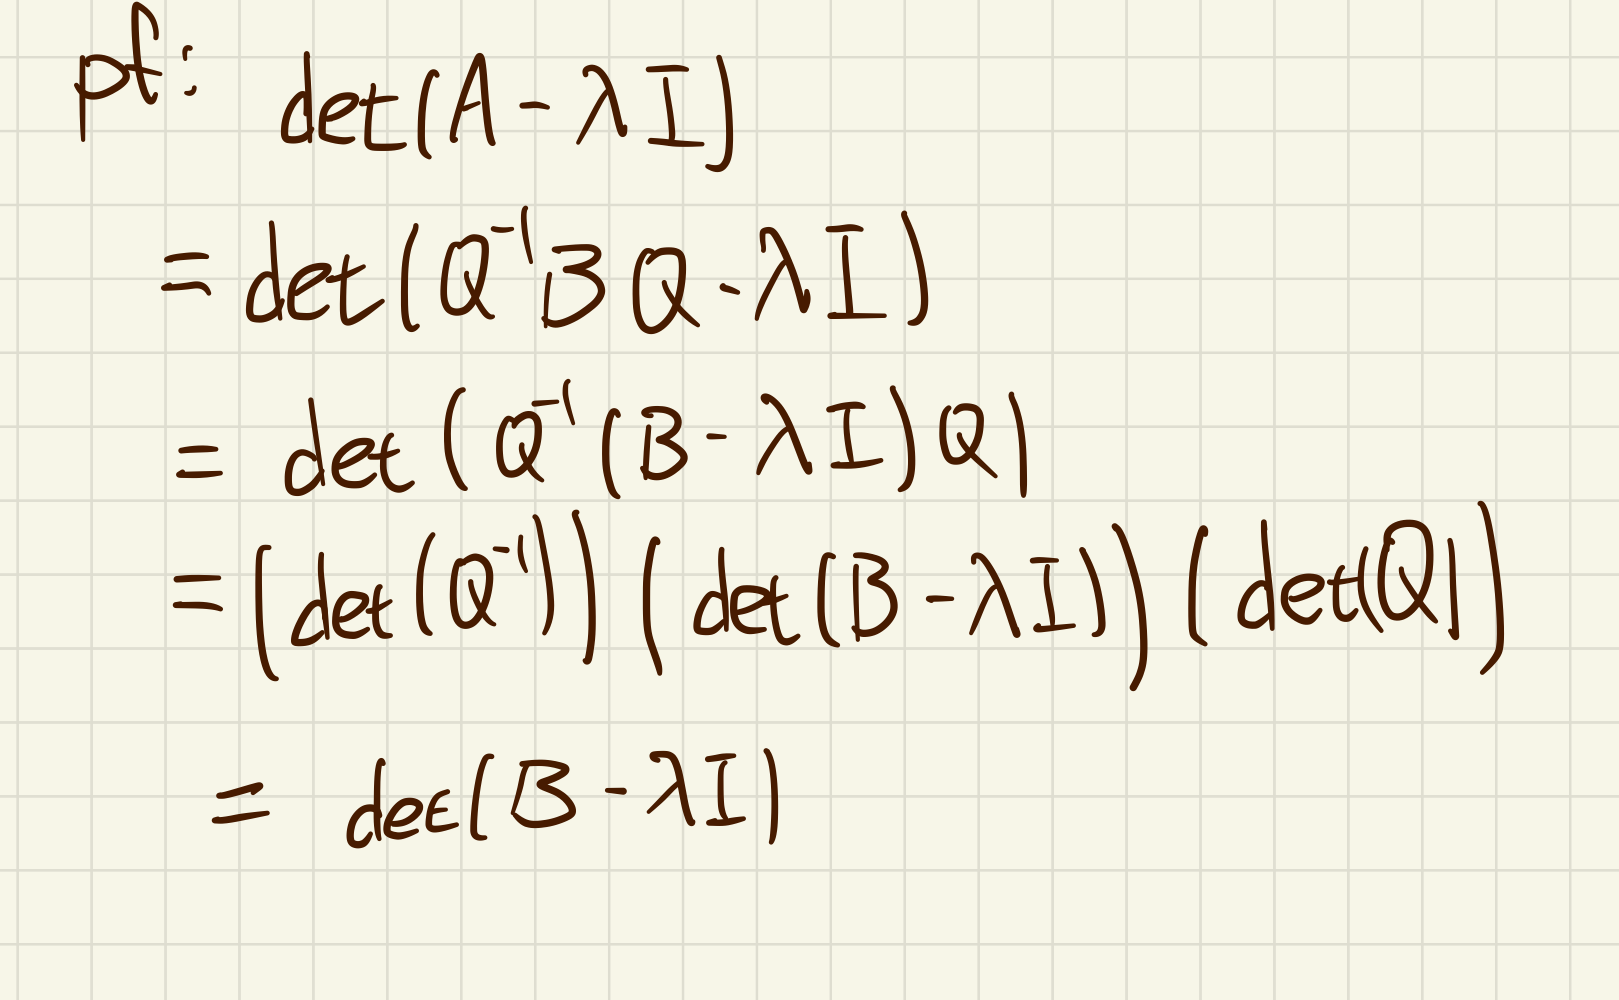 pf: det(A - λI)
= det(Q⁻¹BQ - λI)
= det(Q⁻¹(B - λI)Q)
= (det(Q⁻¹))(det(B - λI))(det(Q))
= det(B - λI)